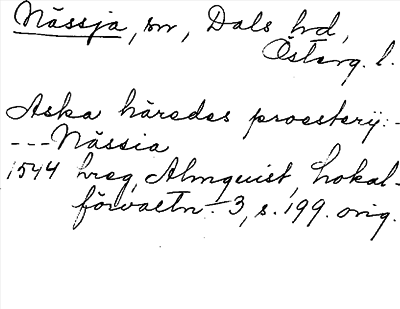 Nässja, sn, Dals hd,
Österg. l.
Aska häredes proestery:-
---Nässia
1544 hreg, Almquist, Lokal-
förvaltn. 3, s. 199. orig.